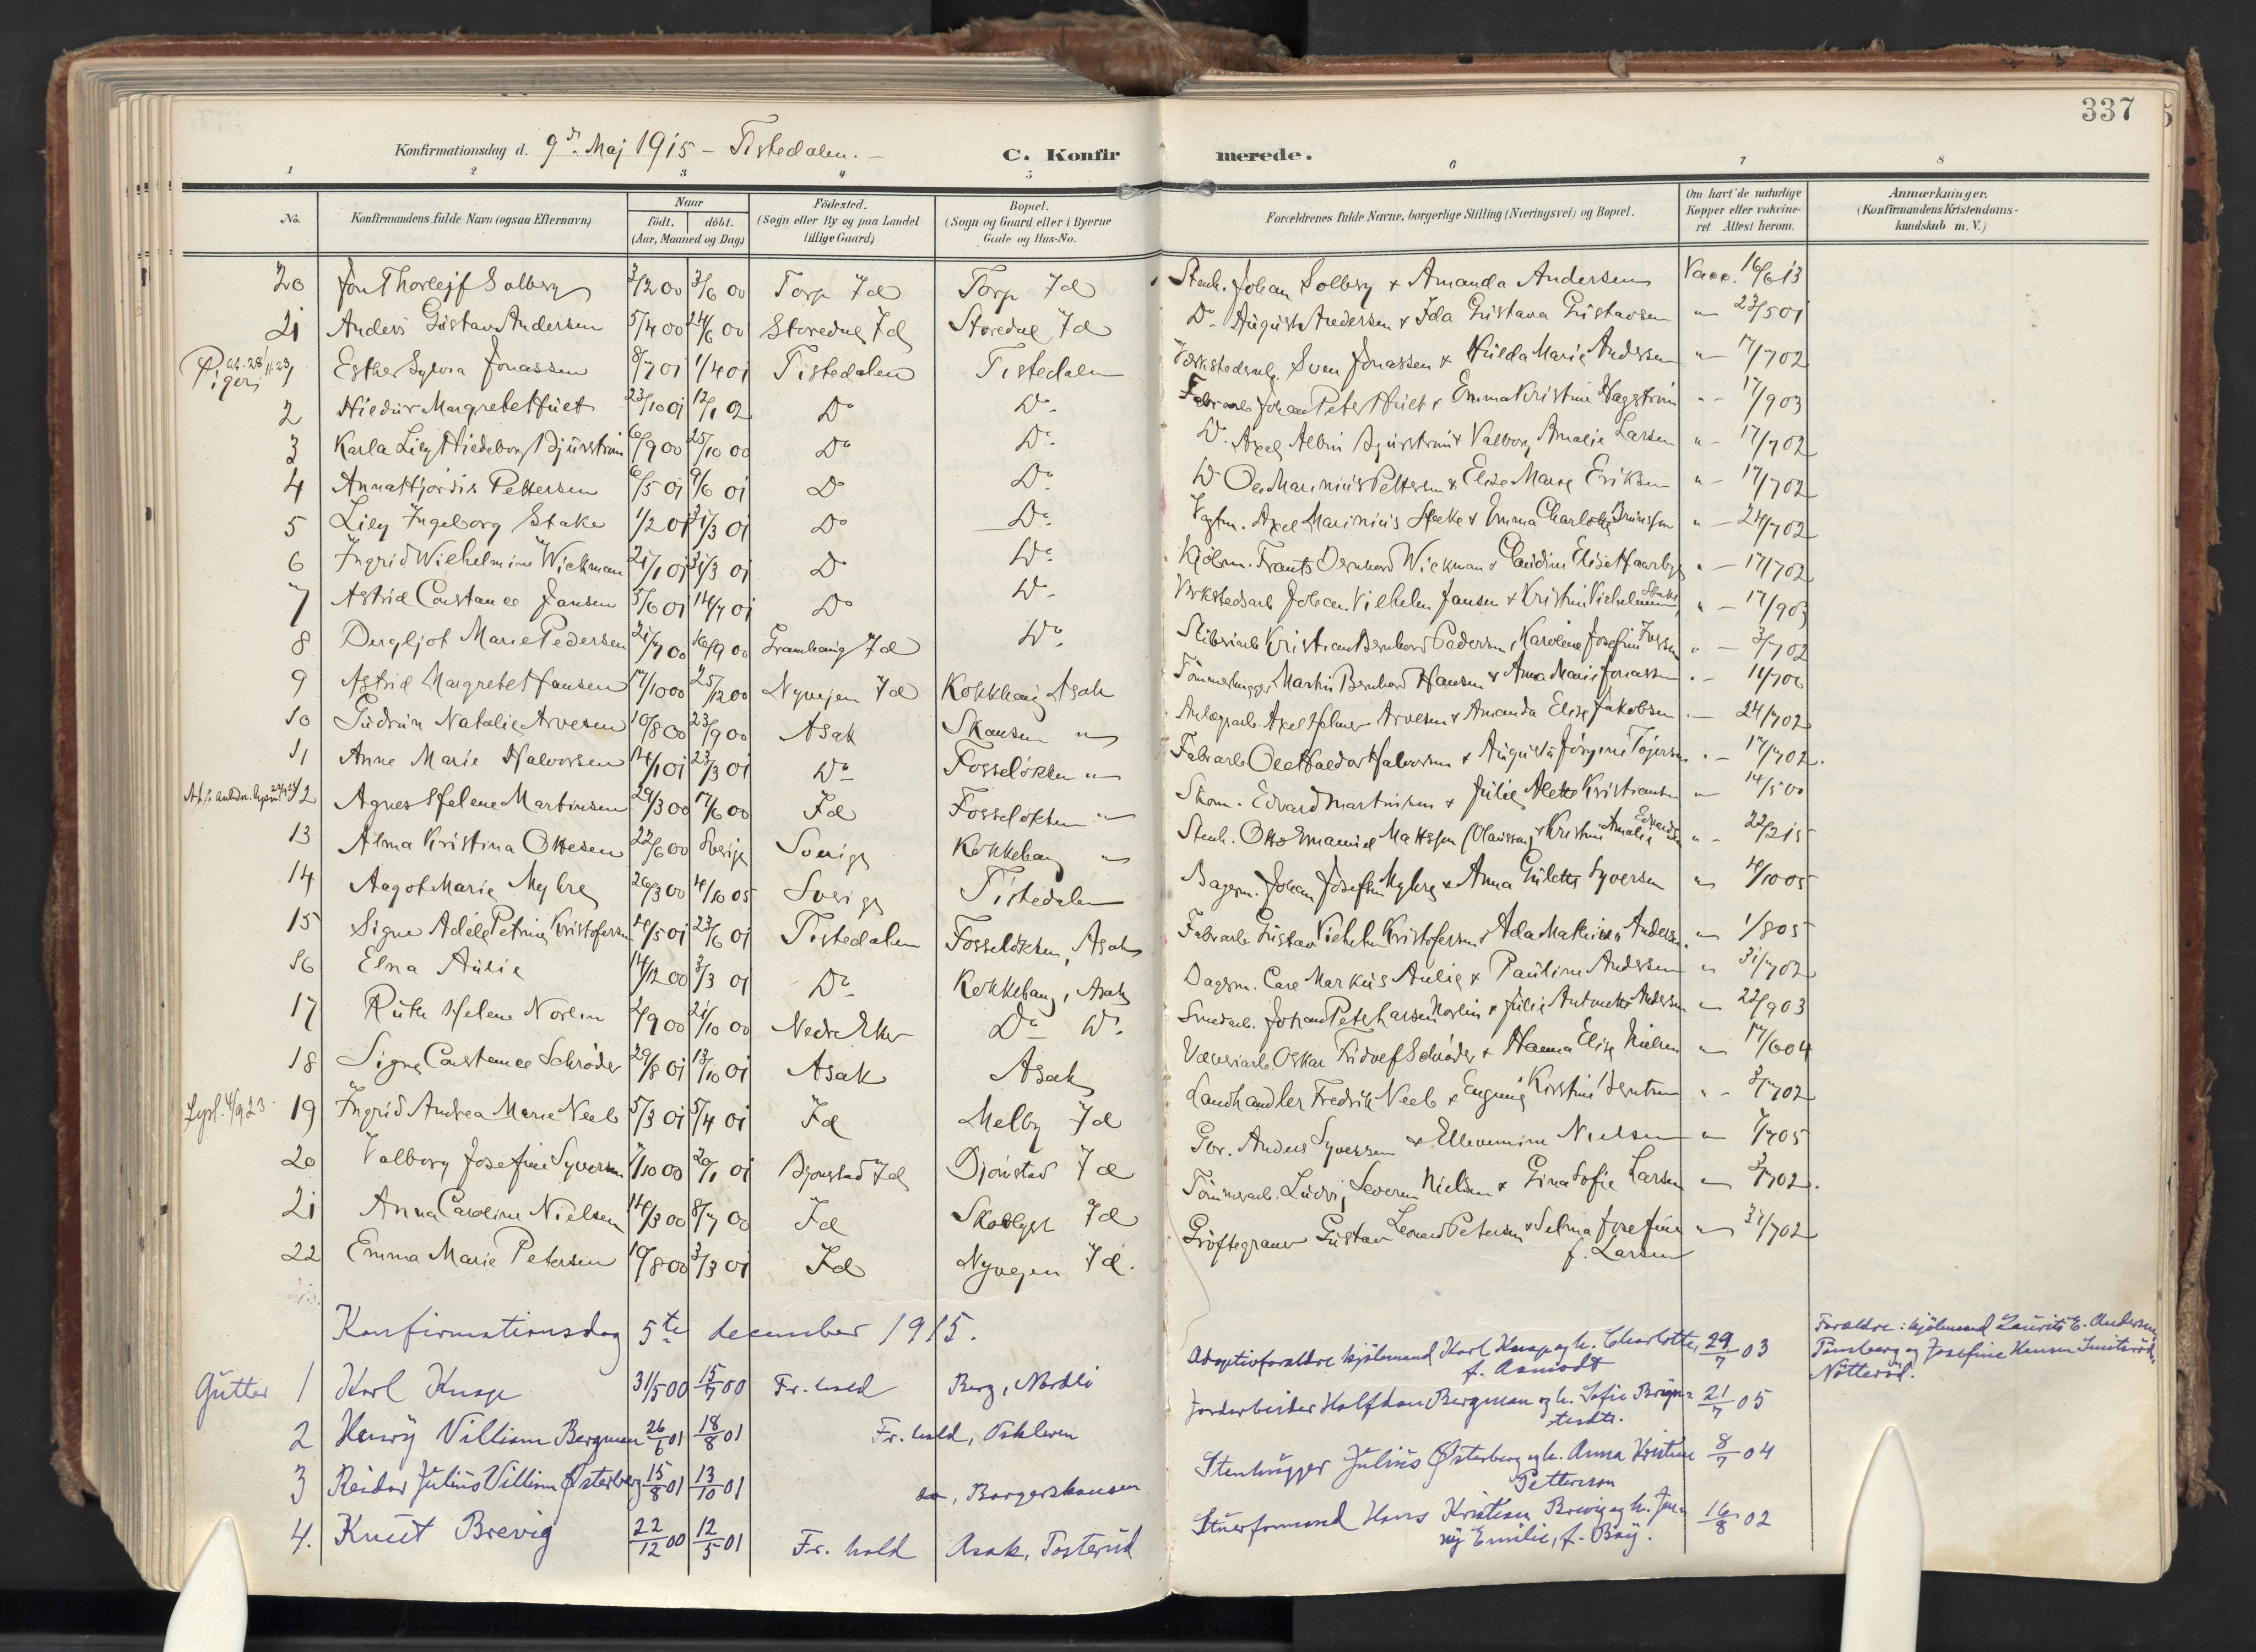 337
Konfirmationsdag d. 9de Maj 1915 – Tistedalen. –
C. Konfirmerede.
1 2 3 4 5 6 7 8
No. Konfirmandens fulde Navn (ogsaa Efternavn) Naar født. døbt. (Aar, Maaned og Dag) Fødested. (Sogn eller By og paa Landet tillige Gaard) Bopæl. (Sogn og Gaard eller i Byerne Gade og Hus-No. Forældrenes fulde Navne, borgerlige Stilling (Næringsvei) og Bopæl. Om havt de naturlige Kopper eller vakcineret Attest herom. Anmærkninger. (Konfirmandens Kristendomskundskab m. V.)
20 Jon Thorleif Solberg 3/2 00 3/6 00 Torp Id Torp Id Stenh. Johan Solberg & Amanda Andersen Vacc. 16/6 13
21 Anders Gustav Andersen 5/4 00 24/6 00 Storedal Id Storedal Id Do August Andersen & Ida Gustava Gustavsen " 23/5 01
Piger 1 Esther Sylvia Jonassen 8/7 01 1/4 01 Tistedalen Tistedalen Verkstedsarb. Sven Jonassen & Hulda Marie Andersen " 17/7 02
2 Margrete Hult 23/10 01 12/1 02 Do Do Fabrarb Johan Peter Hult & Emma Kristine Hagström " 17/9 03
3 Karla Lily Hildeborg Bjurström 6/9 00 25/10 00 Do Do Do Axel Albin Bjurström & Valborg Amalie Larsen " 17/7 02
4 Anna Hjördis Pettersen 6/5 01 9/6 01 Do Do Do Ole Marinius Pettersen & Elise Marie Eriksen " 17/7 02
5 Lily Ingeborg Stake 1/2 01 31/3 01 Do Do Vagtm. Axel Marinius Stake & Emma Charlotte " 24/7 02
6 Ingrid Wilhelmine Wickman 21/1 01 31/3 01 Do Do Kjölm. Frants Bernhard Wickman & Claudine Elise " 17/7 02
7 Astrid Constance Jansen 5/6 01 14/7 01 Do Do Verkstedsarb Johan Vilhelm Jansen & Kristine " 17/9 03
8 Bergljot Marie Pedersen 21/7 00 16/9 00 Id Do Sliberiarb Kristian Bernhard Pedersen, Karoline Josefine " 3/7 02
9 Astrid Margrete Hansen 17/10 00 25/12 00 Nyvejen Id Kokkhaug Asak Tömmerhugger Martin Bernhard Hansen & Anna Marie Jonassen " 11/7 06
10 Gudrun Natalie Arvesen 10/8 00 23/9 00 Asak Skansen " Anlægsarb Axel Helmer Arvesen & Amanda Elise Jakobsen " 24/7 02
11 Anne Marie Halvorsen 14/1 01 23/3 01 Do Fosselökken " Fabrarb Ole Haldor Halvorsen & Augusta Jörgine " 17/7 02.
12 Agnes Helene Martinsen 29/3 00 17/6 00 Id Fosselökken " Skom. Edvard Martinsen & Julie Alette Kristiansen " 14/5 00
13 Alma Kristina Ottesen 22/6 00 Sverige Sverige Kokkehaug " Stenh. Otto Emanuel Mattsson (Olausson) & Kristine Amalie " 22/2 15
14 Aagot Marie Myhre 26/3 00 4/10 05 Sverige Tistedalen Bagerm. Johan Josefsen Myhre & Anna Gulette Syversen " 4/10 05
15 Signe Adéle Petrine Kristofersen 14/5 01 23/6 01 Tistedalen Fosselökken, Asak Fabrarb Gustav Vilhelm Kristofersen & Ada Mathilde Andersen " 1/8 05
16 Elna Aulie 14/12 00 3/3 01 Do Kokkehaug, Asak Bagerm. Carl Markus Aulie & Pauline Andersen " 31/7 02
17 Ruth Helene Norlin 2/9 00 21/10 00 Nedre Eker Do Do Smedarb. Johan Peter Larsen Norlin & Julie Antonette Andersen " 22/9 03
18 Signe Constance Schröder 29/8 01 13/10 01 Asak Asak Oskar Fridolf Schröder & Hanna Elise Nielsen " 17/6 04
19 Ingrid Andrea Marie Neeb 5/3 01 5/4 01 Id Melby Id Landhandler Fredrik Neeb & Eugenie Kristine " 3/7 02
20 Valborg Josefine Syversen 7/10 00 20/1 01 Bjørstad Id Bjørnstad Id Gbr. Anders Syversen & Ellevemine Nielsen " 7/7 05
21 Anna Caroline Nielsen 14/3 00 8/7 00 Id Id Tömmerarb. Ludvig Severin Nielsen & Gina Sofie Larsen " 3/7 02.
22 Emma Marie Petersen 19/8 00 3/3 01 Id Nyvejen Id. Gröftegraver Gustav Leonard Petersen & Selma Josefine f. Larsen " 31/7 02
Konfirmationsdag 5te december 1915.
Gutter 1 Karl Knap 31/5 00 15/7 00 Fr. hald Berg, Nordli Adoptivforældre kjölemand Karl Knap og h. Charlotte, f. Asmodt 29/7 03 Forældre: kjölemand Laurits E. Andersen, Tønsberg og Josefine Hansen Smitsröd, Nötteröi.
2 Henry Villiam Bergman 26/6 01 18/8 01 Fr. hald, Oskleven Jordarbeider Halfdan Bergman og h. Sofie 21/7 05
3 Reidar Julius Villiam Østerberg 15/8 01 13/10 01 do, Borgershausen Stenhugger Julius Østerberg og h. Anna Kristine Petterson 8/7 04
4. Knut Brevig 22/12 00 12/5 01 Fr. hald Asak, Tosterud Stuerformand Hans Kristian Brevig og h. Jenny Emilie, f. Bøy. 16/8 02